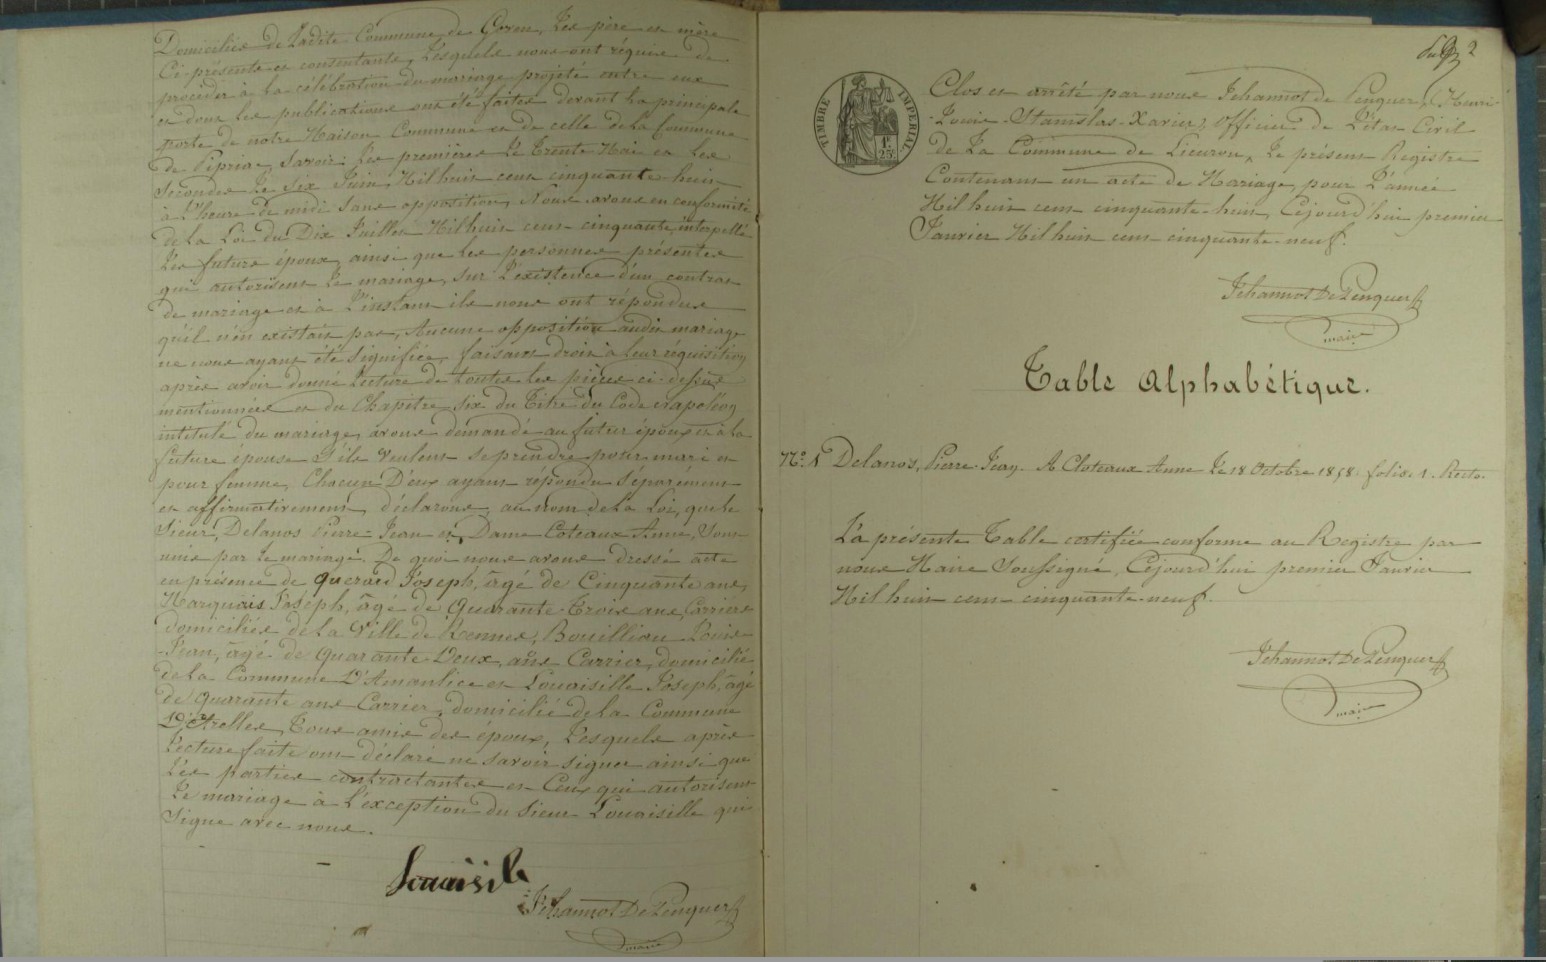 Domiciliés de Ladite Commune de Goven, Les père et mère
Ci-présents et consentants, Lesquels nous ont réquis de
procéder à la célébration du mariage projeté entre eux
et dont les publications ont été faites devant la principale
porte de notre Maison Commune et de celle de la Commune
de Savoir: Les premières le Trente Mai et les
Secondes Le Six Juin, Mil huit cent cinquante-huit
à l'heure de midi Sans opposition, Nous avons en conformité
de la Loi du Dix Juillet Mil huit cent cinquante, interpellé
Les futurs époux, ainsi que les personnes présentes
qui autorisent Le mariage, Sur L'existence d'un contrat
de mariage et à L'instant ils nous ont répondus
qu'il n'en existait pas, Aucune opposition audit mariage
ne nous ayant été signifiée, faisant droit à leur réquisition
après avoir donné Lecture de toutes les pièces ci-dessus
mentionnées et du Chapitre Six du Titre du Code Napoléon
intitulé du mariage, avons demandé au futur époux et à la
future épouse S'ils veulent se prendre pour mari et
pour femme, Chacun D'eux ayant répondu Séparément
et affirmativement, déclarons, au nom de La Loi, que le
Sieur, Delanos Pierre-Jean et Dame Coteaux Anne, Sont
unis par Le mariage. De quoi nous avons dressé acte
en présence de Querard Joseph, âgé de Cinquante ans,
Marquais Joseph, âgé de Quarante-Trois ans, Carriers
domiciliés de La Ville de Rennes, Bouilliau Louis
-Jean, âgé de Quarante Deux, ans Carrier, domicilié
de La Commune D'Amanlice et Louaisille Joseph, âgé
de Quarante ans Carrier, domicilié de La Commune
D'Etrelles, Tous amis des époux, Lesquels après
Lecture faite ont déclaré ne savoir signer ainsi que
Les parties contractantes et Ceux qui autorisent
Le mariage à L'exception du Sieur Louaisille qui
Signe avec nous.
Louaisile
Jehannot De Penquer
maire
2
TIMBRE IMPERIAL
1f.
25c.
Clos et arrêté par nous Jehannot de Penquer, Henri
-Louis-Stanislas-Xavier, Officier de L'état Civil
de La Commune de Lieuron, Le présent Registre
Contenant un acte de Mariage, pour L'année
Mil huit cent cinquante-huit, Cejourd'hui premier
Janvier Mil huit cent cinquante-neuf.
Jehannot De Penquer
maire
Table Alphabétique.
N.° 1 Delanos, Pierre Jean. A Cloteaux Anne Le 18 Octobre 1858. folio. 1. Recto.
La présente Table certifiée conforme au Registre par
nous Maire Soussigné, Cejourd'hui premier Janvier
Mil huit cent cinquante-neuf.
Jehannot De Penquer
maire